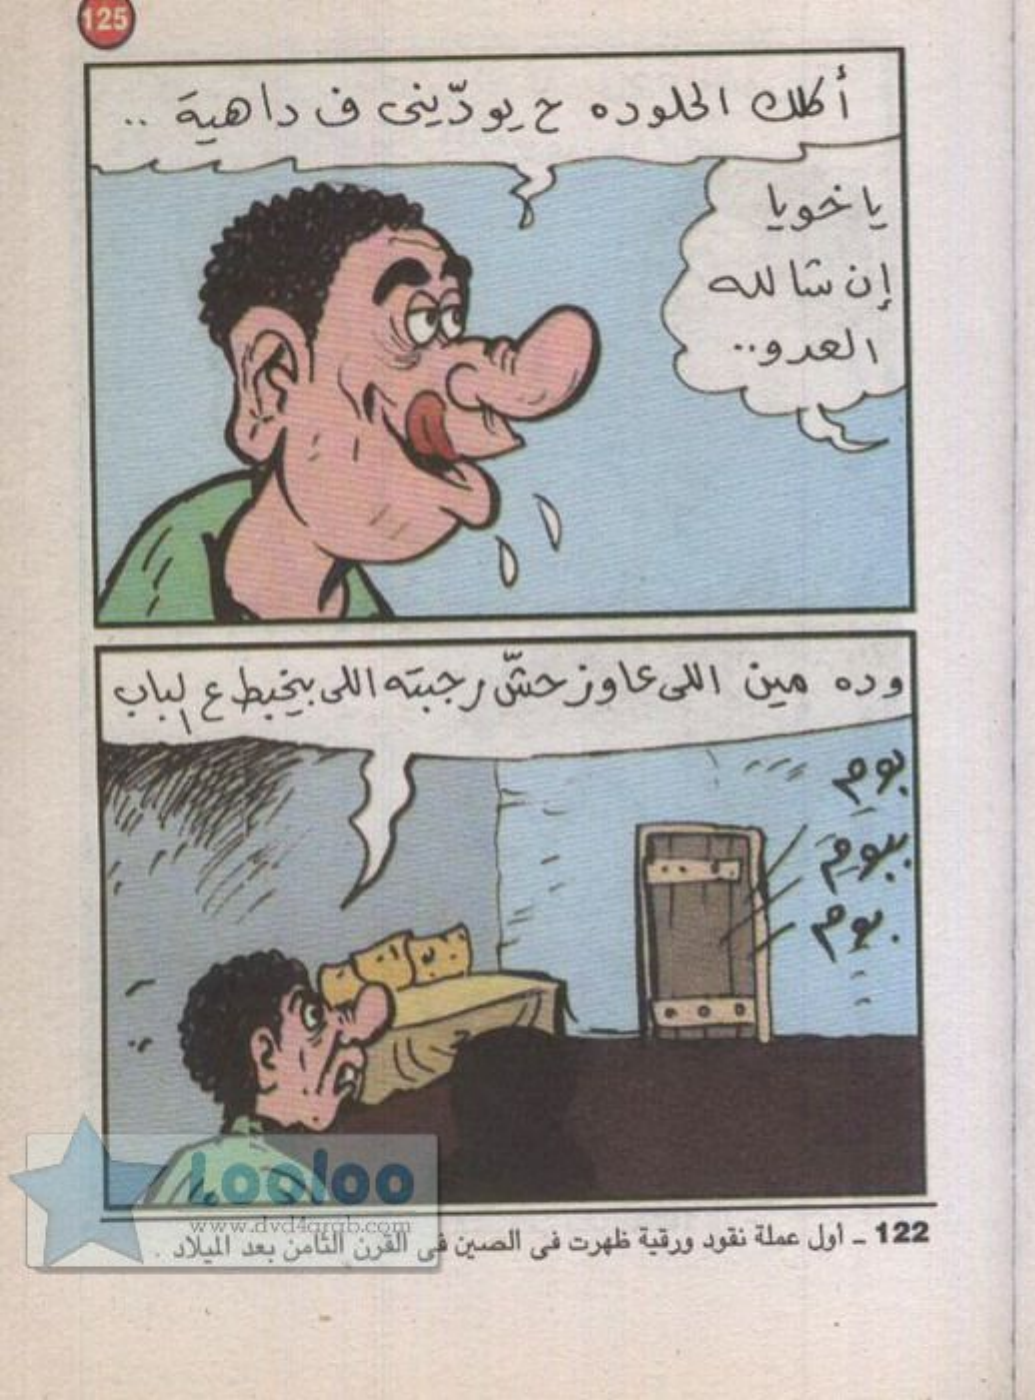 125
أكلك الحلوده ح يودّينى ف داهية ..
يا خويا
إن شا لله
العدو..
وده مين اللى عاوز حشّ رجبته اللى بيخبط ع الباب
بوم
بيوم
بوم.
Looloo
www.dvd4arab.com
122 ــ أول عملة نقود ورقية ظهرت فى الصين فى القرن الثامن بعد الميلاد .